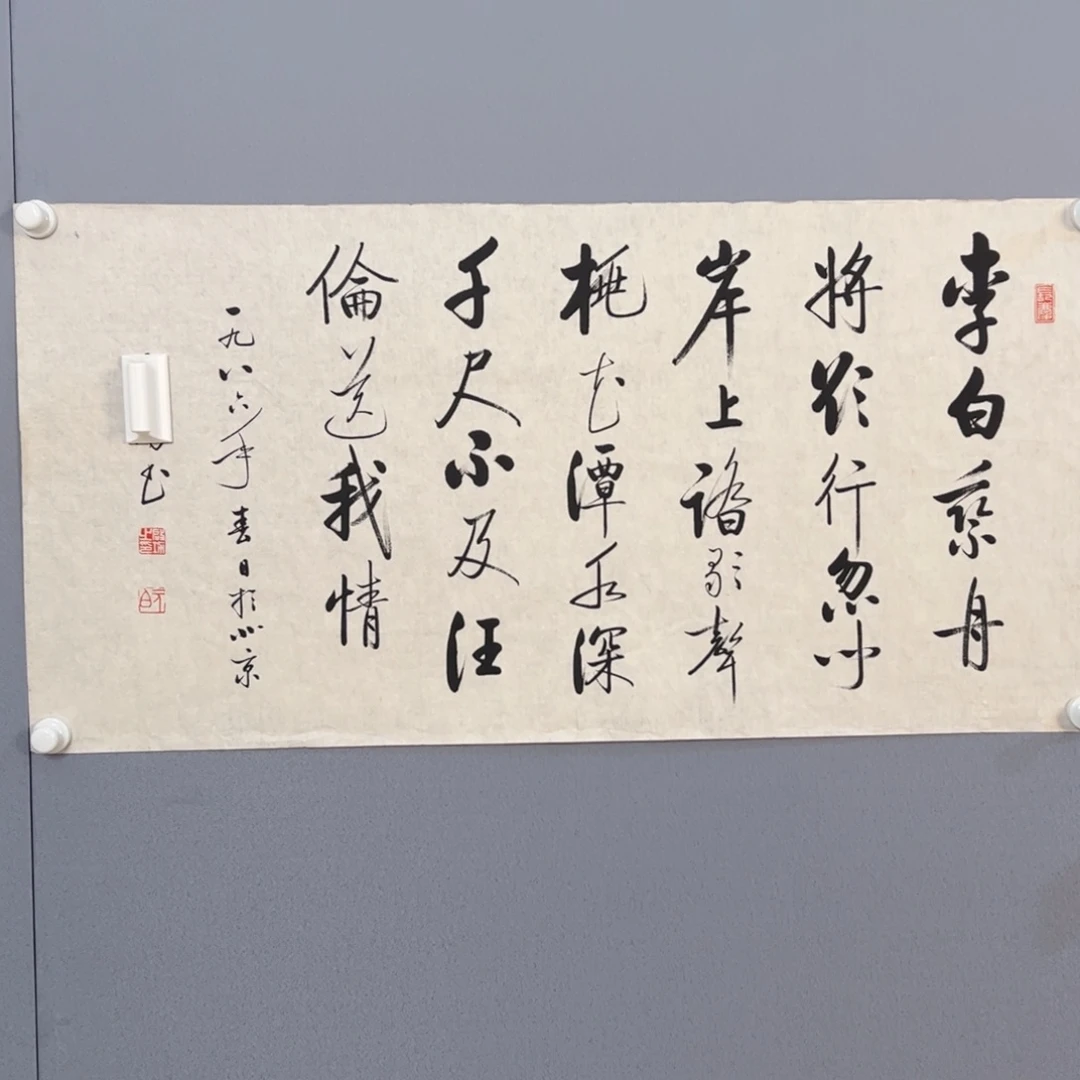 李白乘舟
將欲行忽聞
岸上踏歌聲
桃花潭水深
千尺不及汪
倫送我情
一九八六年春日於北京
書